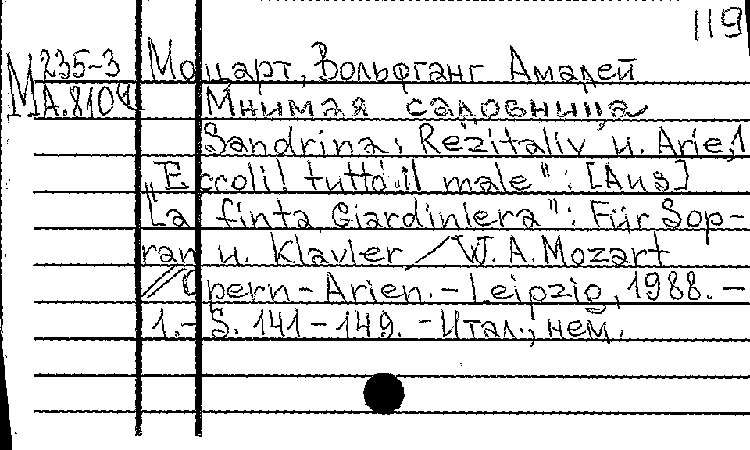 119
М 235-3 Моцарт, Вольфганг Амадей
А.8104 Мнимая садовница
Sandrina; Rezitaliv u. Arie,1
"Eccoli! tutto il male": [Aus]
"La finta Giardiniera": Für Sop-
ran u. Klavier / W. A. Mozart
// Opern-Arien. - Leipzig, 1988. -
1. - S. 141-149. - Итал., нем.